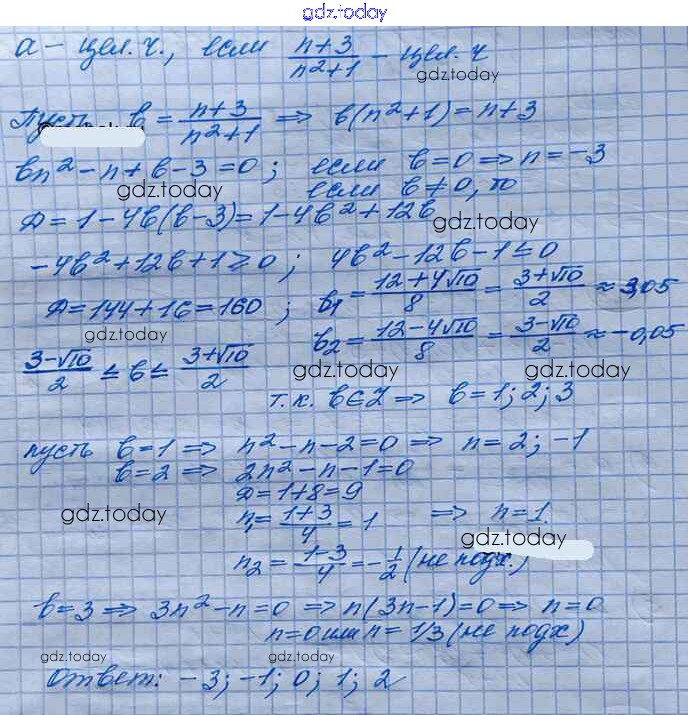 gdz.today
a - цел. ч., если (n+3)/(n²+1) - цел. ч
gdz.today
Пусть в = (n+3)/(n²+1) ⇒ в(n²+1) = n+3
вn² - n + в - 3 = 0; если в = 0 ⇒ n = -3
gdz.today если в ≠ 0, то
Д = 1 - 4в(в-3) = 1 - 4в² + 12в
gdz.today
-4в² + 12в + 1 ≥ 0; 4в² - 12в - 1 ≤ 0
Д = 144 + 16 = 160; в₁ = (12+4√10)/8 = (3+√10)/2 ≈ 3,05
gdz.today
в₂ = (12-4√10)/8 = (3-√10)/2 ≈ -0,05
(3-√10)/2 ≤ в ≤ (3+√10)/2
gdz.today gdz.today
т.к. в∈Z ⇒ в = 1; 2; 3
пусть в = 1 ⇒ n² - n - 2 = 0 ⇒ n = 2; -1
в = 2 ⇒ 2n² - n - 1 = 0
Д = 1 + 8 = 9
gdz.today n₁ = (1+3)/4 = 1 ⇒ n = 1.
gdz.today
n₂ = (1-3)/4 = -1/2 (не подх.)
в = 3 ⇒ 3n² - n = 0 ⇒ n(3n-1) = 0 ⇒ n = 0
n = 0 или n = 1/3 (не подх)
gdz.today gdz.today gdz.today
Ответ: -3; -1; 0; 1; 2